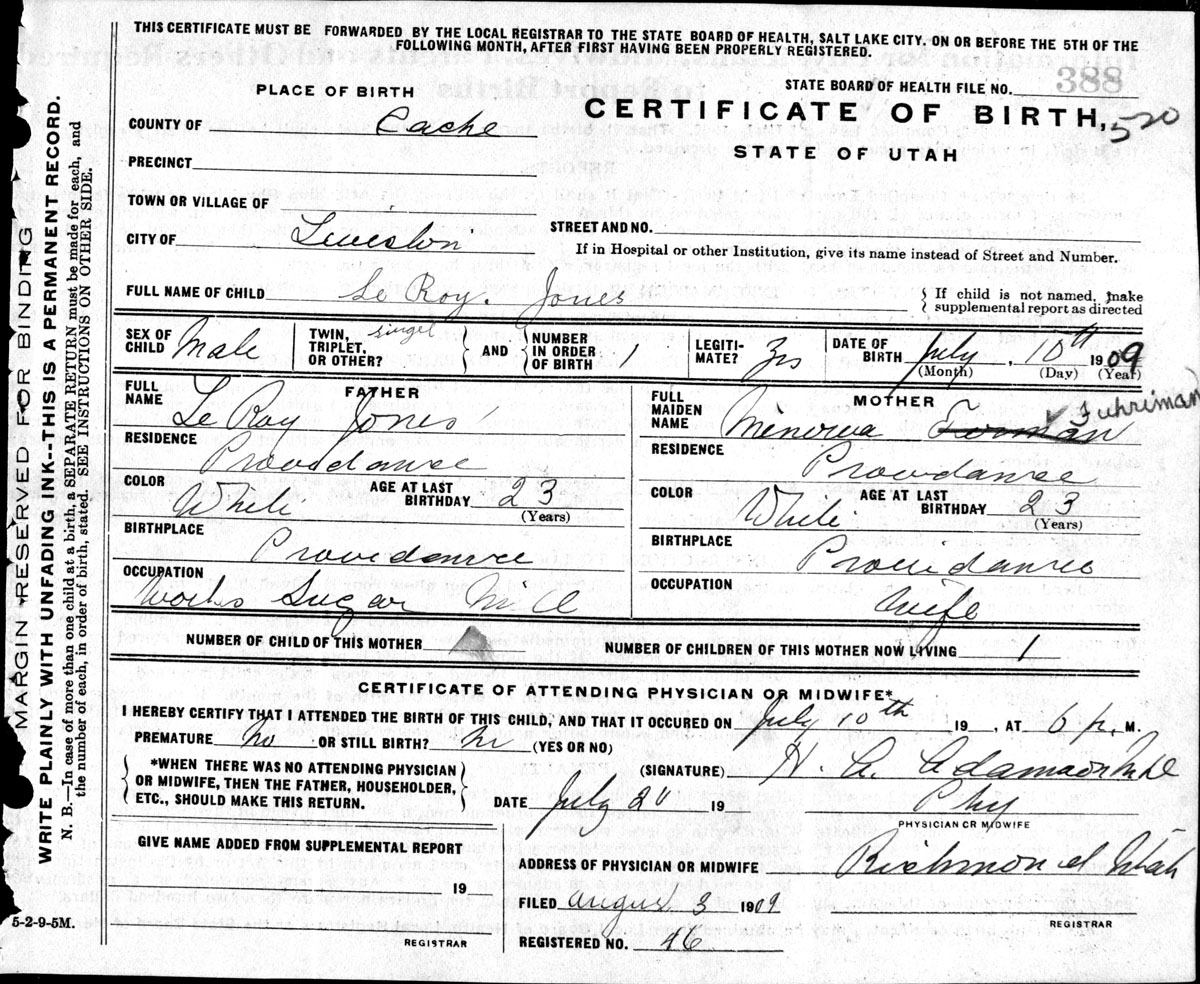 THIS CERTIFICATE MUST BE FORWARDED BY THE LOCAL REGISTRAR TO THE STATE BOARD OF HEALTH, SALT LAKE CITY, ON OR BEFORE THE 5TH OF THE
FOLLOWING MONTH, AFTER FIRST HAVING BEEN PROPERLY REGISTERED.
MARGIN RESERVED FOR BINDING
WRITE PLAINLY WITH UNFADING INK--THIS IS A PERMANENT RECORD.
N. B.—In case of more than one child at a birth, a SEPARATE RETURN must be made for each, and
the number of each, in order of birth, stated. SEE INSTRUCTIONS ON OTHER SIDE.
STATE BOARD OF HEALTH FILE NO. 388
PLACE OF BIRTH
CERTIFICATE OF BIRTH, 520
STATE OF UTAH
COUNTY OF Cache
PRECINCT
TOWN OR VILLAGE OF
STREET AND NO.
CITY OF Lewiston
If in Hospital or other Institution, give its name instead of Street and Number.
FULL NAME OF CHILD Le Roy. Jones
If child is not named, make
supplemental report as directed
SEX OF CHILD Male
TWIN, TRIPLET, OR OTHER? singel
AND
NUMBER IN ORDER OF BIRTH 1
LEGITI- MATE? Yes
DATE OF BIRTH July, 10th 1909
(Month) (Day) (Year)
FATHER
FULL NAME Le Roy Jones
RESIDENCE Providance
COLOR White
AGE AT LAST BIRTHDAY 23
(Years)
BIRTHPLACE Providance
OCCUPATION Works Sugar Mill
MOTHER
FULL MAIDEN NAME Minerva Fuhriman
RESIDENCE Providance
COLOR White
AGE AT LAST BIRTHDAY 23
(Years)
BIRTHPLACE Providance
OCCUPATION Wife
NUMBER OF CHILD OF THIS MOTHER 1
NUMBER OF CHILDREN OF THIS MOTHER NOW LIVING 1
CERTIFICATE OF ATTENDING PHYSICIAN OR MIDWIFE*
I HEREBY CERTIFY THAT I ATTENDED THE BIRTH OF THIS CHILD, AND THAT IT OCCURED ON July 10th 19 , AT 6 P. M.
PREMATURE No OR STILL BIRTH? No (YES OR NO)
*WHEN THERE WAS NO ATTENDING PHYSICIAN
OR MIDWIFE, THEN THE FATHER, HOUSEHOLDER,
ETC., SHOULD MAKE THIS RETURN.
(SIGNATURE) H. A. Adamson
DATE July 20 19
Phy
PHYSICIAN OR MIDWIFE
GIVE NAME ADDED FROM SUPPLEMENTAL REPORT
19
REGISTRAR
ADDRESS OF PHYSICIAN OR MIDWIFE Richmond Utah
FILED August 3 1909
REGISTRAR
REGISTERED NO. 46
5-2-9-5M.